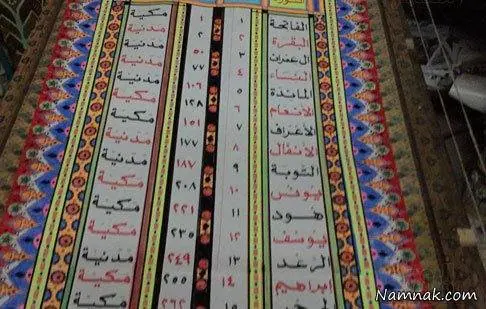 الفاتحة ١ ١ مكية
البقرة ٢ ٢ مدنية
آل عمران ٣ ٥٠ مدنية
النساء ٤ ٧٧ مدنية
المائدة ٥ ١٠٦ مدنية
الأنعام ٦ ١٢٨ مكية
الأعراف ٧ ١٥١ مكية
الأنفال ٨ ١٧٧ مدنية
التوبة ٩ ١٨٧ مدنية
يونس ١٠ ٢٠٨ مكية
هود ١١ ٢٢١ مكية
يوسف ١٢ ٢٣٥ مكية
الرعد ١٣ ٢٤٩ مدنية
ابراهيم ١٤ ٢٥٥ مكية
٢٦٢ مكية
Namnak.com